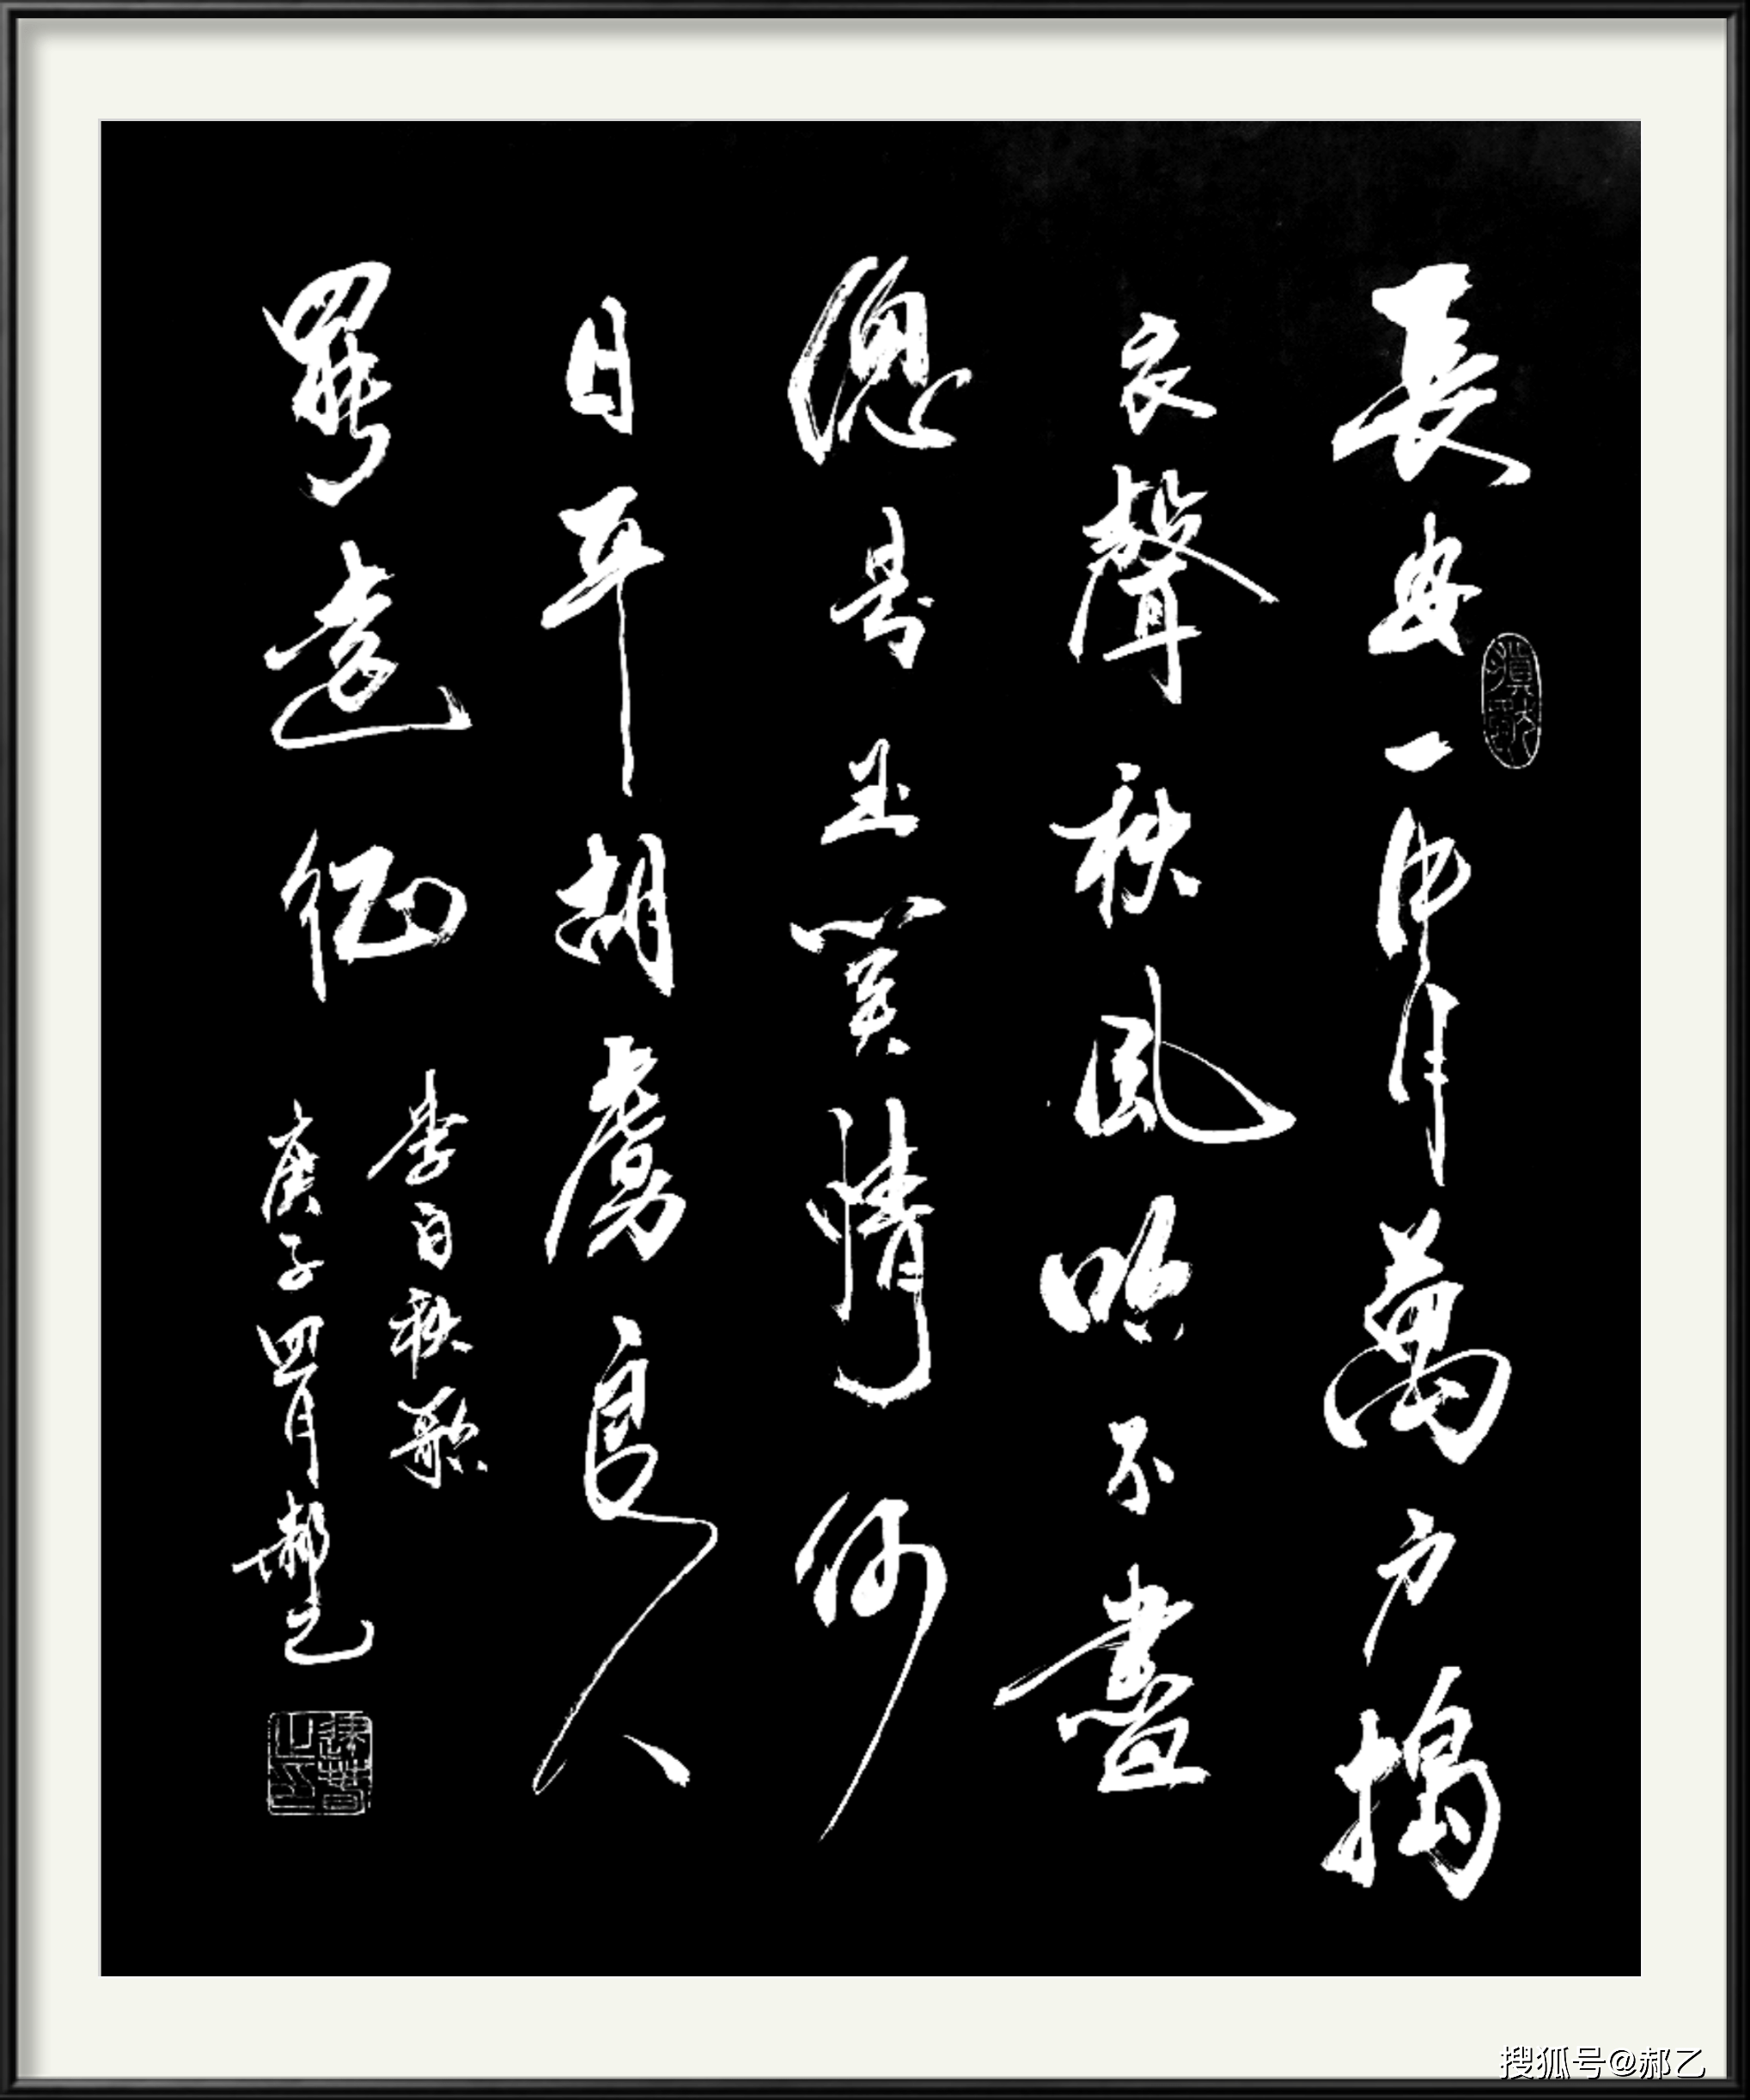 長安一片月萬戶搗
衣聲秋風吹不盡
總是玉關情何
日平胡虜良人
罷遠征
李白秋歌
庚子四月郝乙
搜狐号@郝乙